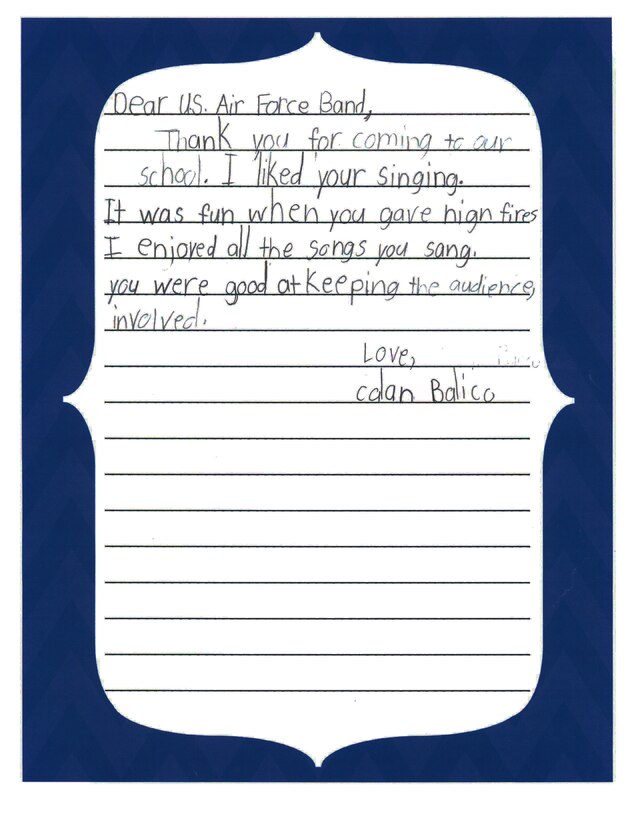 Dear U.S. Air Force Band,
Thank you for coming to our
school. I liked your singing.
It was fun when you gave high fires
I enjoyed all the songs you sang.
you were good at keeping the audience,
involved.
Love,
colan Balico